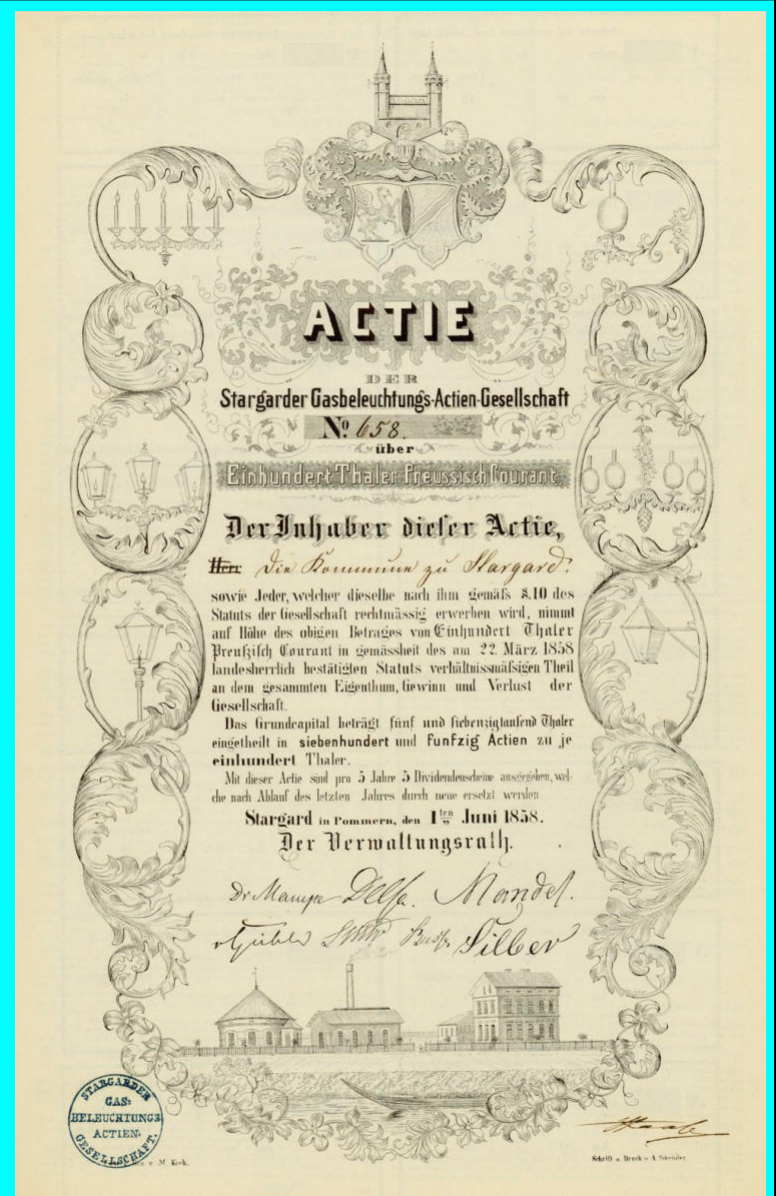 ACTIE
DER
Stargarder Gasbeleuchtungs-Actien-Gesellschaft
No. 658.
über
Einhundert Thaler Preussisch Courant
Der Inhaber dieser Actie,
Herr Die Kommune zu Stargard.
sowie Jeder, welcher dieselbe nach ihm gemäß §.10 des
Statuts der Gesellschaft rechtmässig erwerben wird, nimmt
auf Höhe des obigen Betrages von Einhundert Thaler
Preußisch Courant in gemässheit des am 22. März 1858
landesherrlich bestätigten Statuts verhältnissmäßigen Theil
an dem gesammten Eigenthum, Gewinn und Verlust der
Gesellschaft.
Das Grundcapital beträgt fünf und siebenzigtausend Thaler
eingetheilt in siebenhundert und funfzig Actien zu je
einhundert Thaler.
Mit dieser Actie sind pro 5 Jahre 5 Dividendenscheine ausgegeben, wel-
che nach Ablauf des letzten Jahres durch neue ersetzt werden
Stargard in Pommern, den 1ten Juni 1858.
Der Verwaltungsrath.
Dr Mampe Mandel.
Silber
STARGARDER
GAS-
BELEUCHTUNGS
ACTIEN-
GESELLSCHAFT.
v. M. Keck.
Schrift u. Druck v. A. Schröder